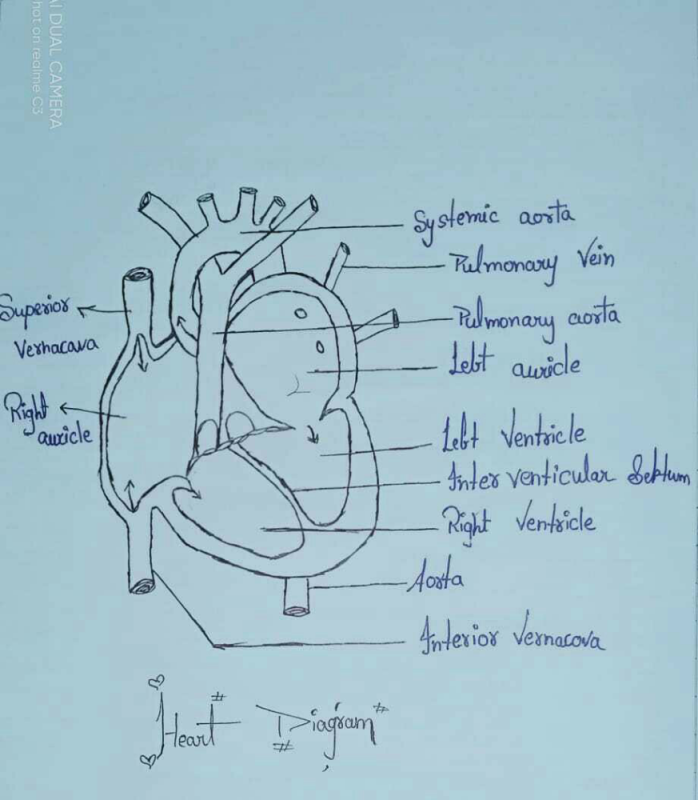 AI DUAL CAMERA
Shot on realme C3
Systemic aorta
Pulmonary Vein
Superior
Vernacava
Pulmonary aorta
Lebt auricle
Right
auricle
Lebt Ventricle
Interventicular Sebtum
Right Ventricle
Aorta
Interior Vernacova
Heart# #Diagram#